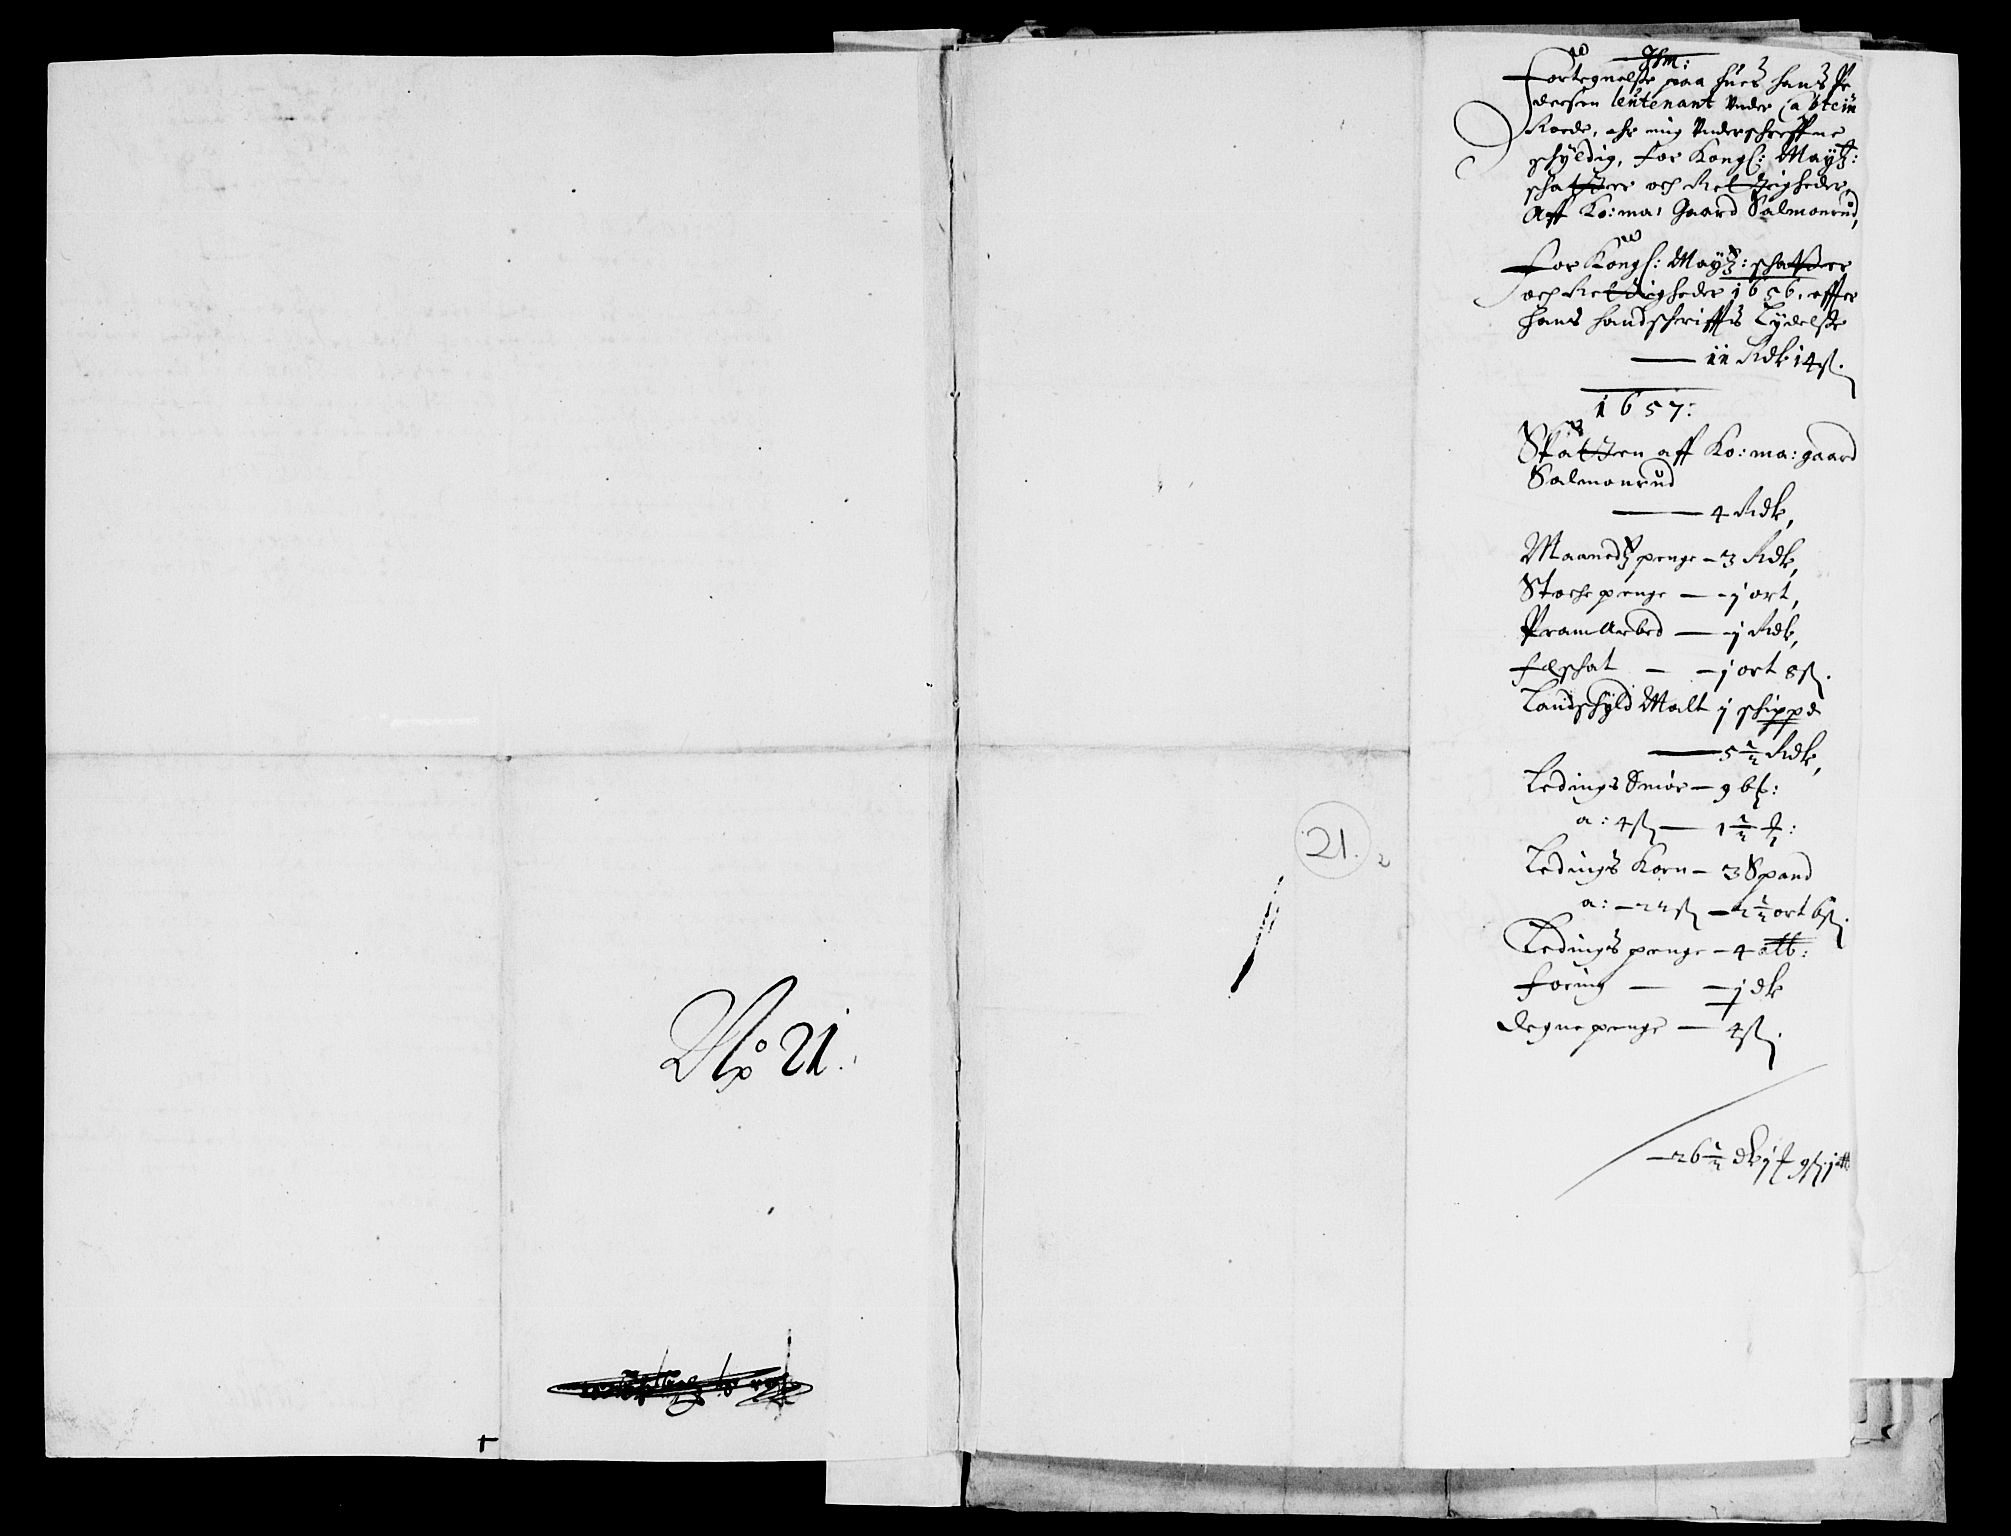 No 21.
21.
Ihm:
Fortegnelse paa hues hans Pe
dersen leutenant Vnder Cabtein
Roede, ehr mig Vnderschreffne
schÿldig, for Kongl: Maÿtz:
schatter och Retdigheder,
Aff Ko: ma: Gaard Salmonrud,
For Kongl: Maÿtz: schatter
och Retdigheder 1656, effter
hans handschriffts Lÿdelse
— 11 Rdlr 14 s.
1657:
Skatten aff Ko: ma: gaard
Salmonrud
— 4 Rdlr,
Maanedtz penge — 3 Rdlr,
Stoche penge — j ort,
PramArbed — j Rdlr,
feschat — j ort 8 s.
Landschÿld Malt j schippd
— 5 ½ Rdlr,
Ledings Smör — 9
a: 4 s — 1 ½
Ledings Korn — 3 Spand
a: — 22 s — 2 ½ ort 6 s.
Ledings penge — 4 alb:
foring — j dlr
degne penge — 4 s.
— 26 ½ dlr j 9 s. j alb